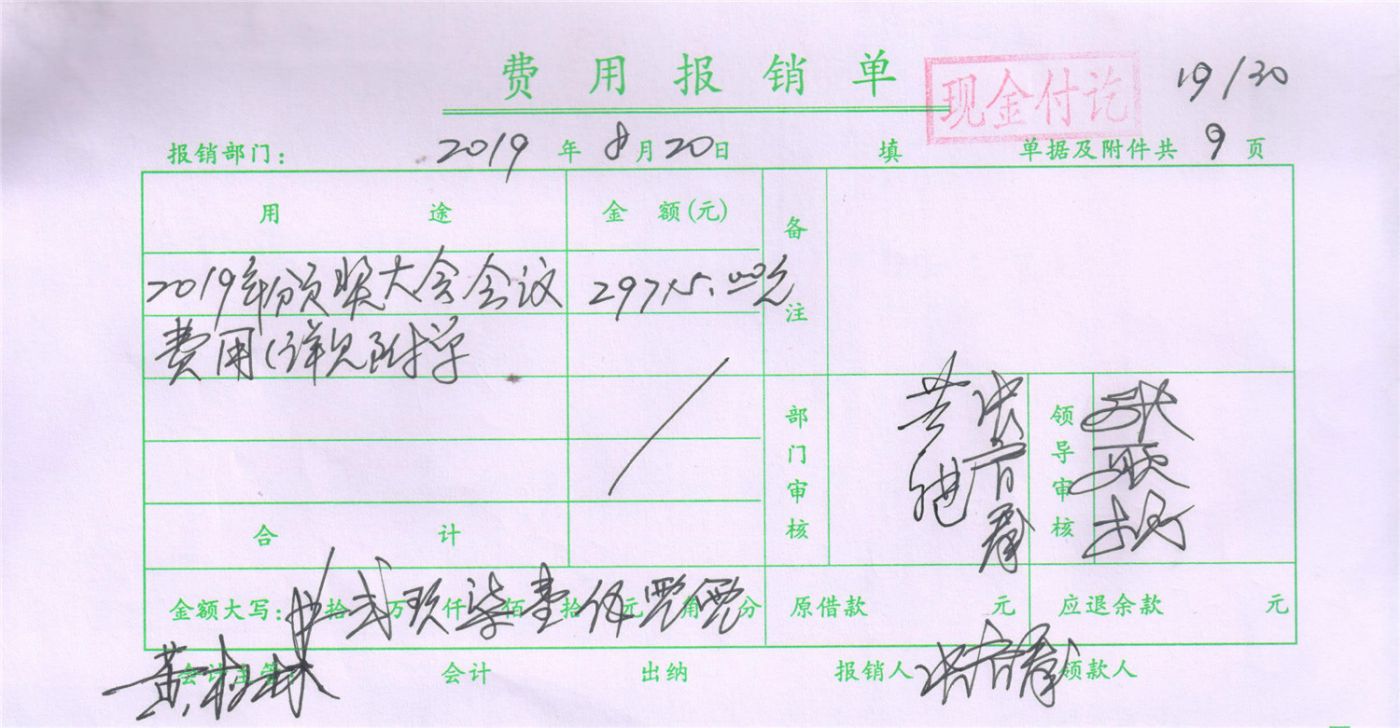 费用报销单
现金付讫
19/30
报销部门: 2019年8月20日 填 单据及附件共9页
用途 金额(元) 备注
2019年颁奖大会会议 29715.00元
费用(详见附单
部门审核 领导审核
合计
金额大写: 拾贰万玖仟柒佰壹拾伍元零角零分 原借款 元 应退余款 元
会计主管 会计 出纳 报销人 领款人